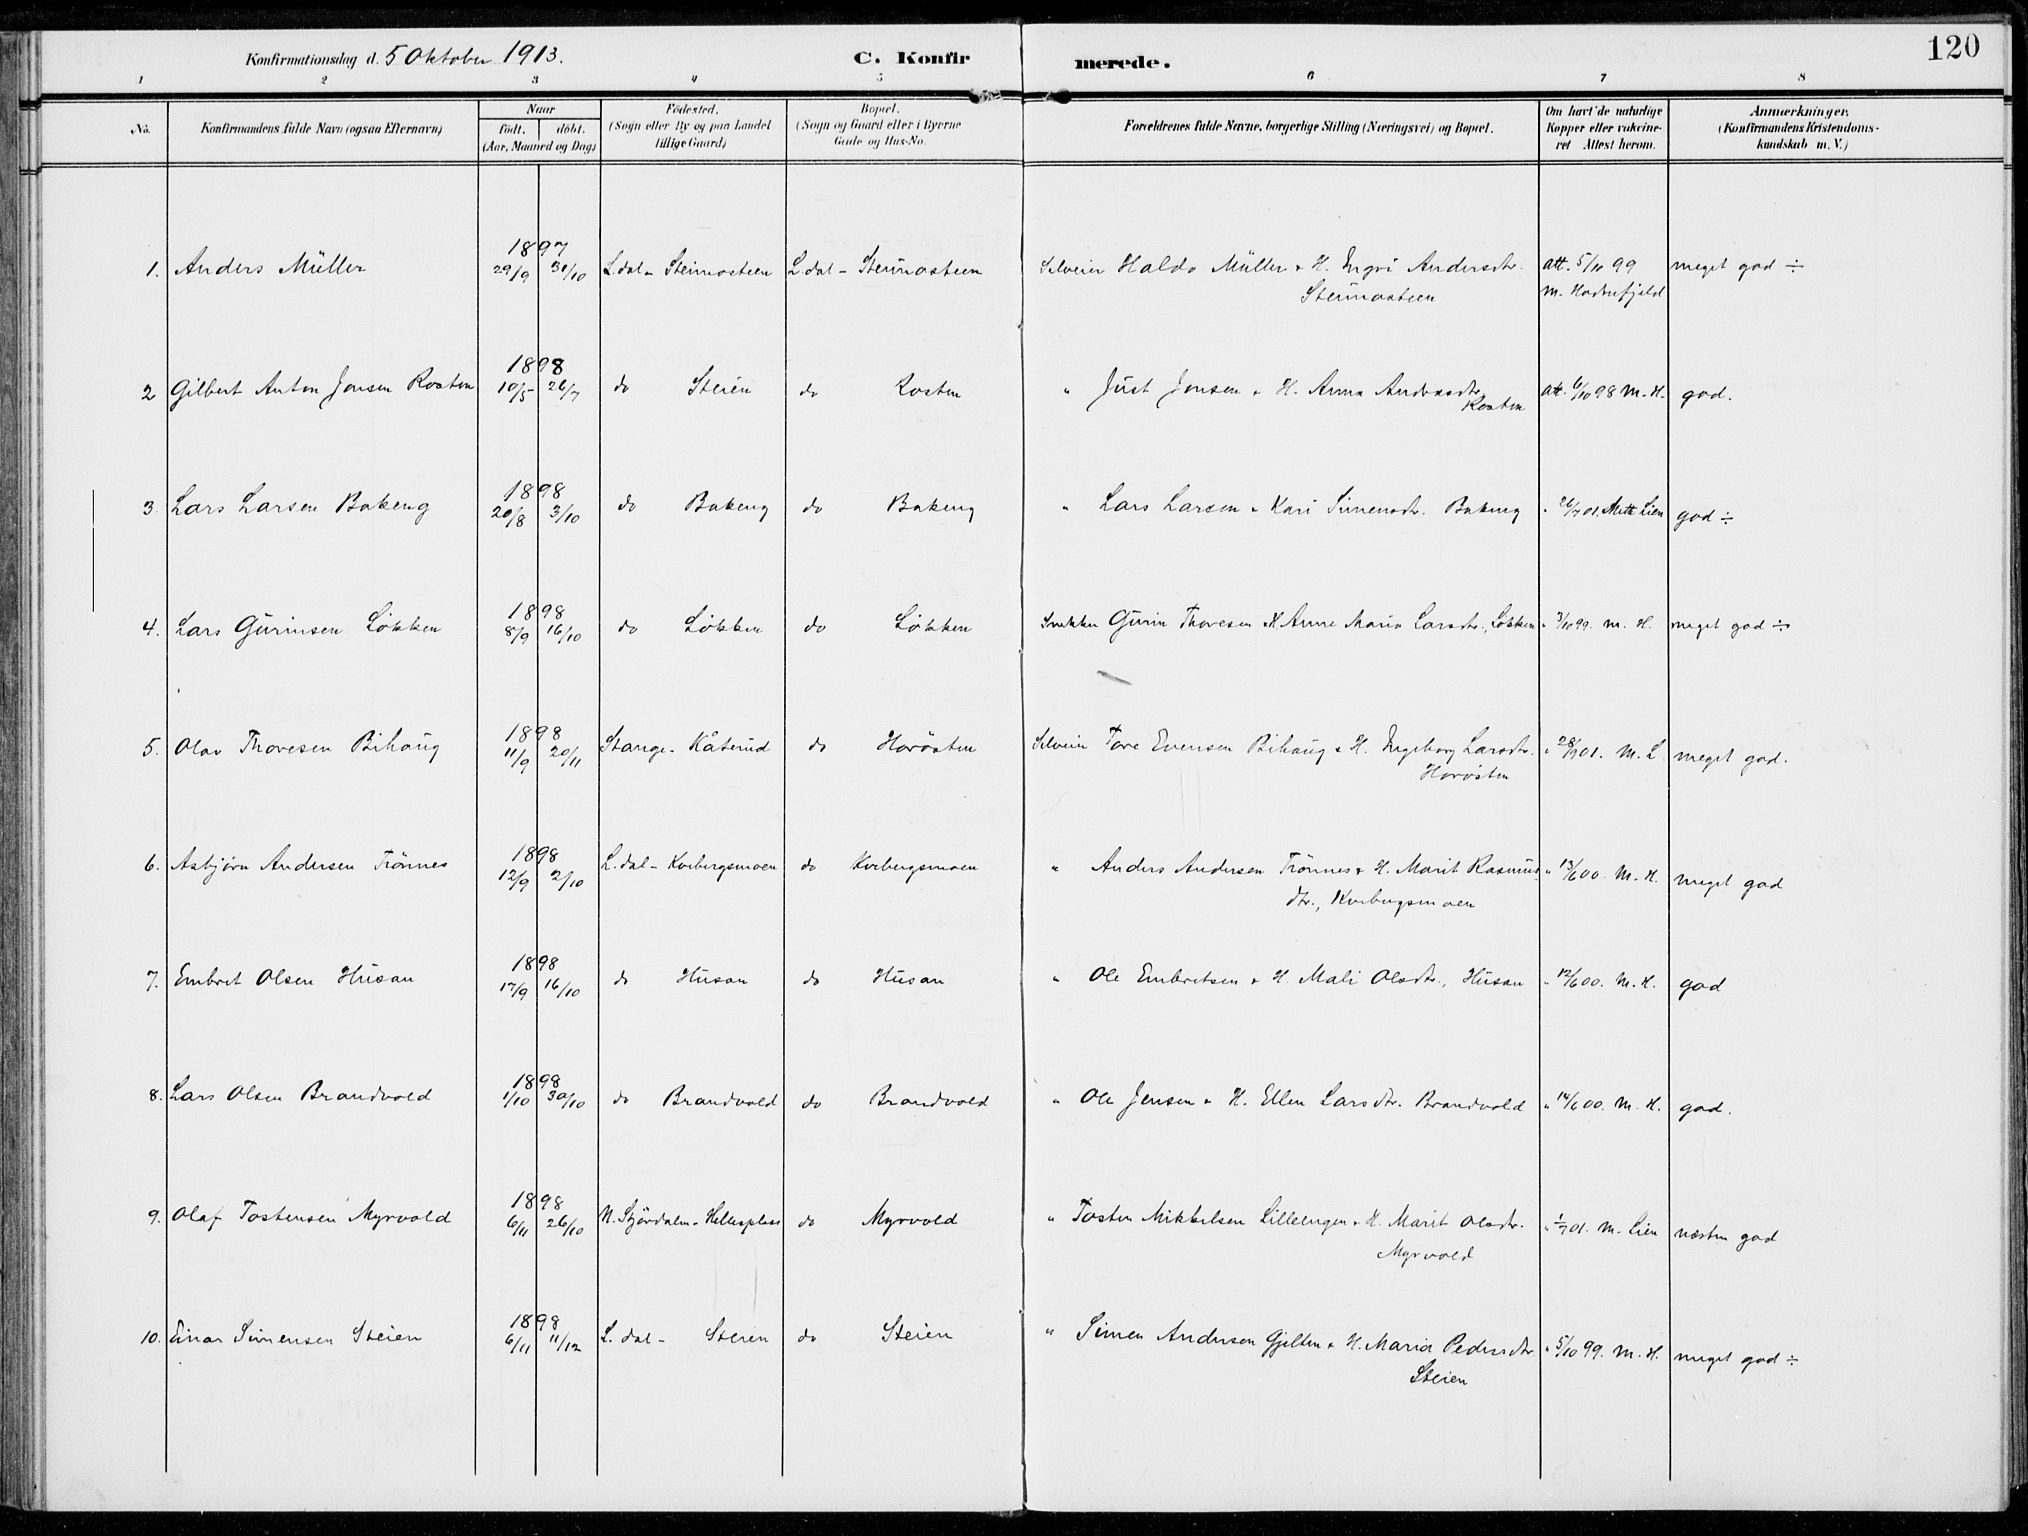 Konfirmationsdag d. 5 Oktober 1913. C. Konfir merede. 120
1 2 3 4 5 6 7 8
No. Konfirmandens fulde Navn (ogsaa Efternavn) Naar födt. döbt. (Aar, Maaned og Dag) Födested. (Sogn eller By og paa Landet tillige Gaard) Bopæl. (Sogn og Gaard eller i Byerne Gade og Hus-No. Forældrenes fulde Navne, borgerlige Stilling (Næringsvei) og Bopæl. Om havt de naturlige Kopper eller vakcineret Attest herom. Anmærkninger. (Konfirmandens Kristendomskundskab m. V.)
1897
1. Anders Müller 29/9 31/10 L.dal - Steimosteen L.dal - Steimosteen Selveier Haldo Müller & H. Ingri Andersdtr. att. 5/10 99 meget god ÷
Steimosteen m. Hodnefjeld
1898
2 Gilbert Anton Jonsen Rosten 10/5 26/7 do Steien do Rosten " Just Jonsen & H. Anna Andersdtr. att. 6/10 98 M. H. god.
Rosten
1898
3. Lars Larsen Bakeng 20/8 3/10 do Bakeng do Bakeng " Lars Larsen & Kari Simensdtr. Bakeng " 26/7 01. Mett Lien god ÷
1898
4. Lars Gurinsen Løkken 8/9 16/10 do Løkken do Løkken Snekker Gurin Thoresen & H Anne Maria Larsdtr., Løkken " 3/10 99. M. H. meget god ÷
1898
5. Olav Thoresen Bihaug 11/9 20/11 Stange - Kåterud do Horösten Selveier Tore Evensen Bihaug & H. Ingeborg Larsdtr. " 28/9 01. M. L meget god.
Horösten
1898
6. Asbjørn Andersen Trönnes 12/9 2/10 L.dal - Kvebergsmoen do Kvebergsmoen " Anders Andersen Trönnes & H. Marit Rasmus " 13/6 00. M. H. meget god
dtr., Kvebergsmoen
1898
7. Embret Olsen Husan 17/9 16/10 do Husan do Husan " Ole Embretsen & H. Mali Olsdtr., Husan " 12/6 00. M. H. god
1898
8. Lars Olsen Brandvold 1/10 30/10 do Brandvold do Brandvold " Ole Jensen & H. Ellen Larsdtr. Brandvold " 14/6 00. M. H. god.
1898
9. Olaf Tostensen Myrvold 6/11 26/10 N. Stjördalen - Hellesplass do Myrvold " Tosten Mikkelsen Lilleengen & H. Marit Olsdtr. " 1/7 01. M. Lien næsten god
Myrvold
1898
10. Einar Simensen Steien 6/11 11/12 L. dal - Steien do Steien " Simen Andersen Gjelten & H. Maria Pedersdtr. " 5/10 99. M. H. meget god ÷
Steien